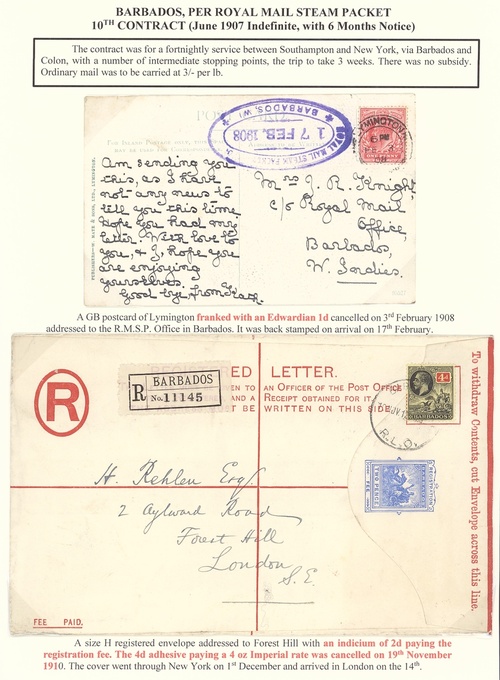 BARBADOS, PER ROYAL MAIL STEAM PACKET
10TH CONTRACT (June 1907 Indefinite, with 6 Months Notice)
The contract was for a fortnightly service between Southampton and New York, via Barbados and
Colon, with a number of intermediate stopping points, the trip to take 3 weeks. There was no subsidy.
Ordinary mail was to be carried at 3/- per lb.
ROYAL MAIL STEAM PACKET
17 FEB. 1908
BARBADOS, W.I.
LYMINGTON
Am sending you
this, as I have
not any news to
tell you this time
Hope you had my
letter. With love to
you, & I hope you
are enjoying
yourselves.
Good bye, from Jack.
Mrs J. R. Knight
c/o Royal Mail
Office,
Barbados,
W. Indies.
A GB postcard of Lymington franked with an Edwardian 1d cancelled on 3rd February 1908
addressed to the R.M.S.P. Office in Barbados. It was back stamped on arrival on 17th February.
R
R BARBADOS
No. 11145
ED LETTER.
EN TO AN OFFICER OF THE POST OFFICE
A RECEIPT OBTAINED FOR IT.
BE WRITTEN ON THIS SIDE.
4d
R.L.O.
TWO PENCE
To withdraw Contents, cut Envelope across this line.
H. Rehlen Esq
2 Aylward Road
Forest Hill
London
S.E.
FEE PAID.
A size H registered envelope addressed to Forest Hill with an indicium of 2d paying the
registration fee. The 4d adhesive paying a 4 oz Imperial rate was cancelled on 19th November
1910. The cover went through New York on 1st December and arrived in London on the 14th.